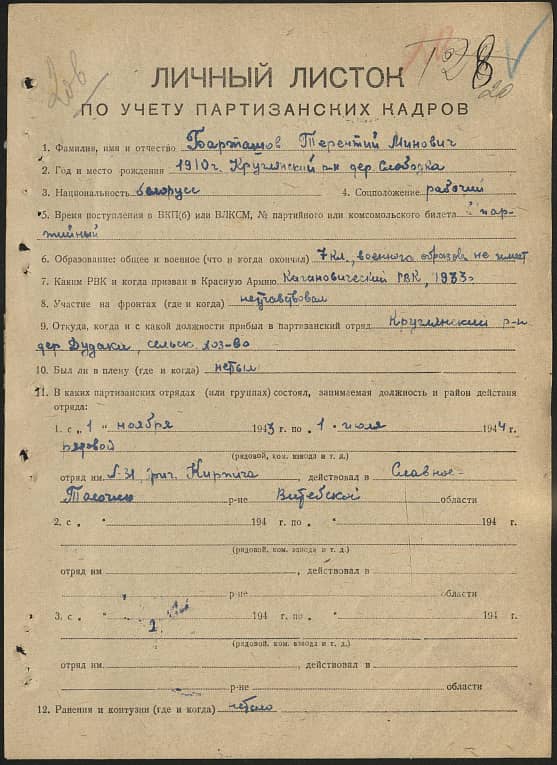 ЛИЧНЫЙ ЛИСТОК
ПО УЧЕТУ ПАРТИЗАНСКИХ КАДРОВ
1. Фамилия, имя и отчество Барташов Терентий Минович
2. Год и место рождения 1910 г. Круглянский р-н дер. Слободка
3. Национальность белорусс 4. Соцположение рабочий
5. Время поступления в ВКП(б) или ВЛКСМ, № партийного или комсомольского билета пар-
тийный
6. Образование: общее и военное (что и когда окончил) 7 кл., военного образов. не имеет
7. Каким РВК и когда призван в Красную Армию Кагановический РВК, 1933г
8. Участие на фронтах (где и когда) неучавствовал
9. Откуда, когда и с какой должности прибыл в партизанский отряд Круглянский р-н
дер. Дудаки, сельск. хоз-во
10. Был ли в плену (где и когда) небыл
11. В каких партизанских отрядах (или группах) состоял, занимаемая должность и район действия
отряда:
1. с „ 1 " ноября 1943 г. по „ 1 " июля 1944 г.
рядовой
(рядовой, ком. взвода и т. д.)
отряд им. № 31, бриг. Кирпича, действовал в Славное-
Толочин р-не Витебской области
2. с „ " 194 г. по „ " 194 г.
(рядовой, ком. взвода и т. д.)
отряд им. , действовал в
р-не области
3. с „ " 194 г. по „ " 194 г.
(рядовой, ком. взвода и т. д.)
отряд им. , действовал в
р-не области
12. Ранения и контузии (где и когда) небыло